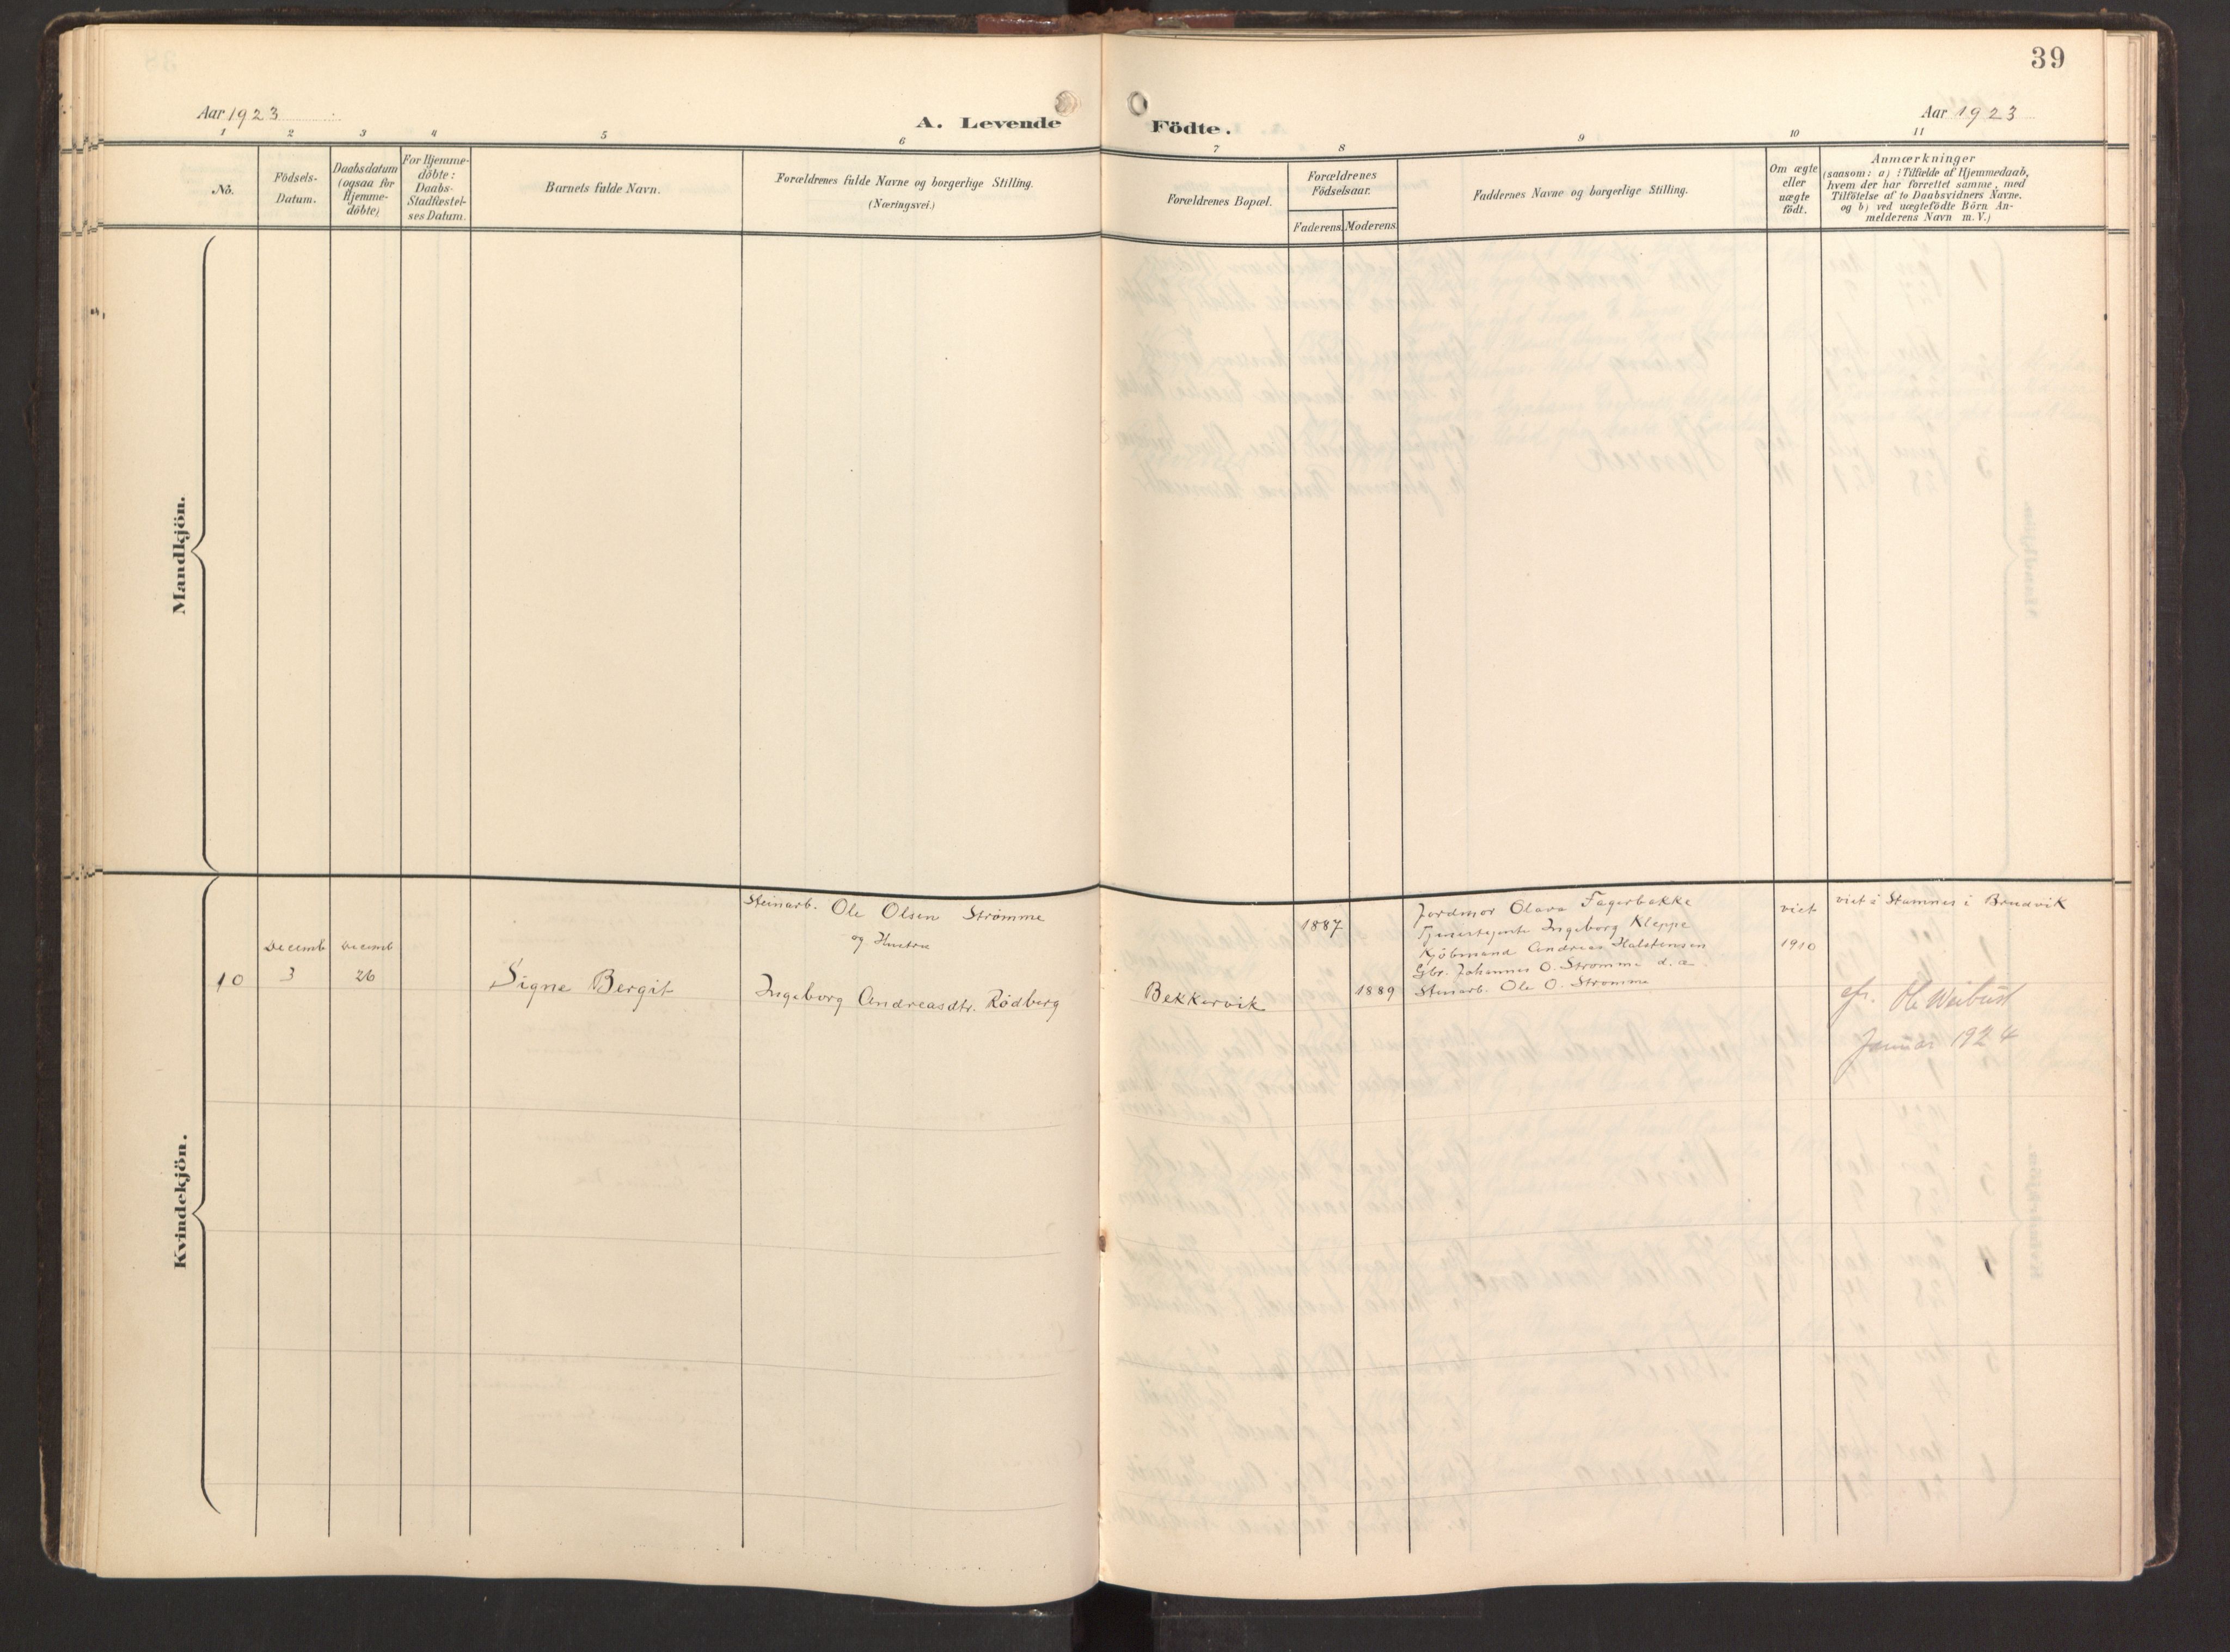 39
Aar 1923
A. Levende Födte.
Aar 1923
1 2 3 4 5 6 7 8 9 10 11
No.
Födsels-
Datum.
Daabsdatum
(ogsaa for
Hjemme-
döbte)
For Hjemme-
döbte:
Daabs-
Stadfæstel-
ses Datum.
Barnets fulde Navn.
Forældrenes fulde Navne og borgerlige Stilling.
(Næringsvei.)
Forældrenes Bopæl.
Forældrenes
Födselsaar.
Faderens. Moderens.
Faddernes Navne og borgerlige Stilling.
Om ægte
eller
uægte
födt.
Anmærkninger
(saasom: a) i Tilfælde af Hjemmedaab,
hvem der har forrettet samme, med
Tilföielse af to Daabsvidners Navne.
og b) ved uægtefödte Börn An-
melderens Navn m. V.)
Mandkjön.
Kvindekjön.
10
Decemb
3
Decemb
26
Signe Bergit
Steinarb. Ole Olsen Strømme
og Hustru
Ingeborg Andreasdtr. Rödberg
Bekkervik
1887
1889
Jordmor Olava Fagerbakke
Ingeborg Kleppe
Kjöbmand Andreas Halstensen
Gbr. Johannes O. Strømme d. æ.
Steinarb. Ole O. Strømme
viet
1910
viet i Stamnes i Bruvik
Ole Weibust
Januar 1924